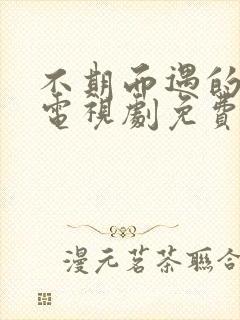 不期而遇的
電視劇免費
漫元茗茶聯合